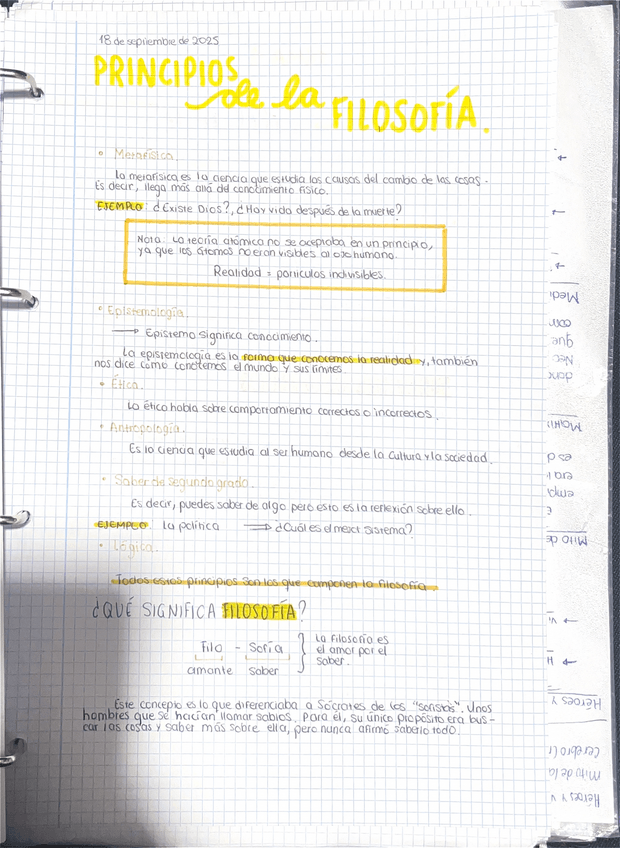 18 de septiembre de 2025
PRINCIPIOS
de la
FILOSOFÍA.
• Metafísica.
La metafísica es la ciencia que estudia las causas del cambio de las cosas.
Es decir, llega más allá del conocimiento físico.
EJEMPLO: ¿Existe Dios?, ¿Hay vida después de la muerte?
Nota. La teoría atómica no se aceptaba en un principio,
ya que los átomos no eran visibles al ojo humano.
Realidad = partículas indivisibles.
• Epistemología.
→ Epistemo significa conocimiento.
La epistemología es la forma que conocemos la realidad y, también
nos dice como conocemos el mundo y sus límites.
• Ética.
La ética habla sobre comportamiento correctos o incorrectos.
• Antropología.
Es la ciencia que estudia al ser humano desde la cultura y la sociedad.
• Saber de segundo grado.
Es decir, puedes saber de algo pero esto es la reflexión sobre ello.
EJEMPLO: La política → ¿Cuál es el mejor sistema?
• Lógica.
Todos estos principios son los que componen la filosofía.
¿QUÉ SIGNIFICA FILOSOFÍA?
Filo - Sofía } La filosofía es
el amor por el
saber.
amante saber
Este concepto es lo que diferenciaba a Sócrates de los "sofistas". Unos
hombres que se hacían llamar sabios. Para él, su único propósito era bus-
car las cosas y saber más sobre ella, pero nunca afirmó saberlo todo.
Héroes y v
Mito de la
cerebro (
Héroes y
Mito de